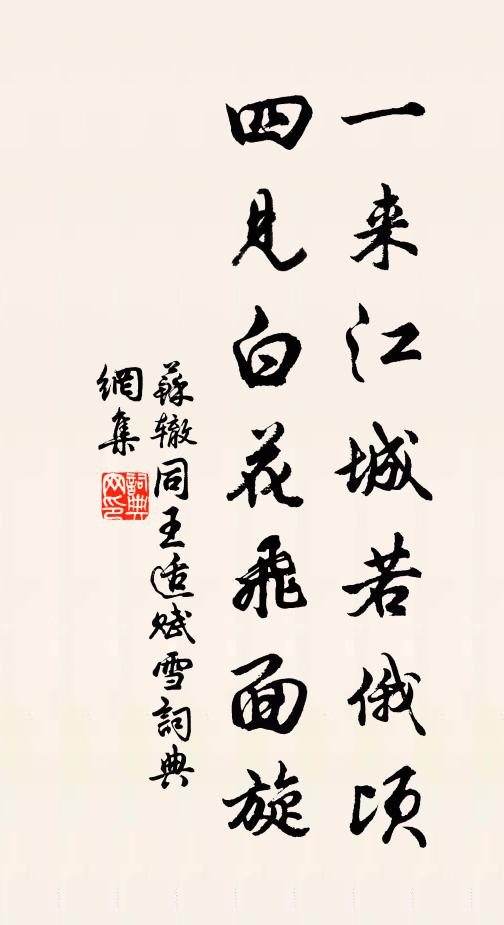 一来江城若俄顷
四见白花飛面旋
蘇辙同王适赋雪詞典
網集
詞典网印